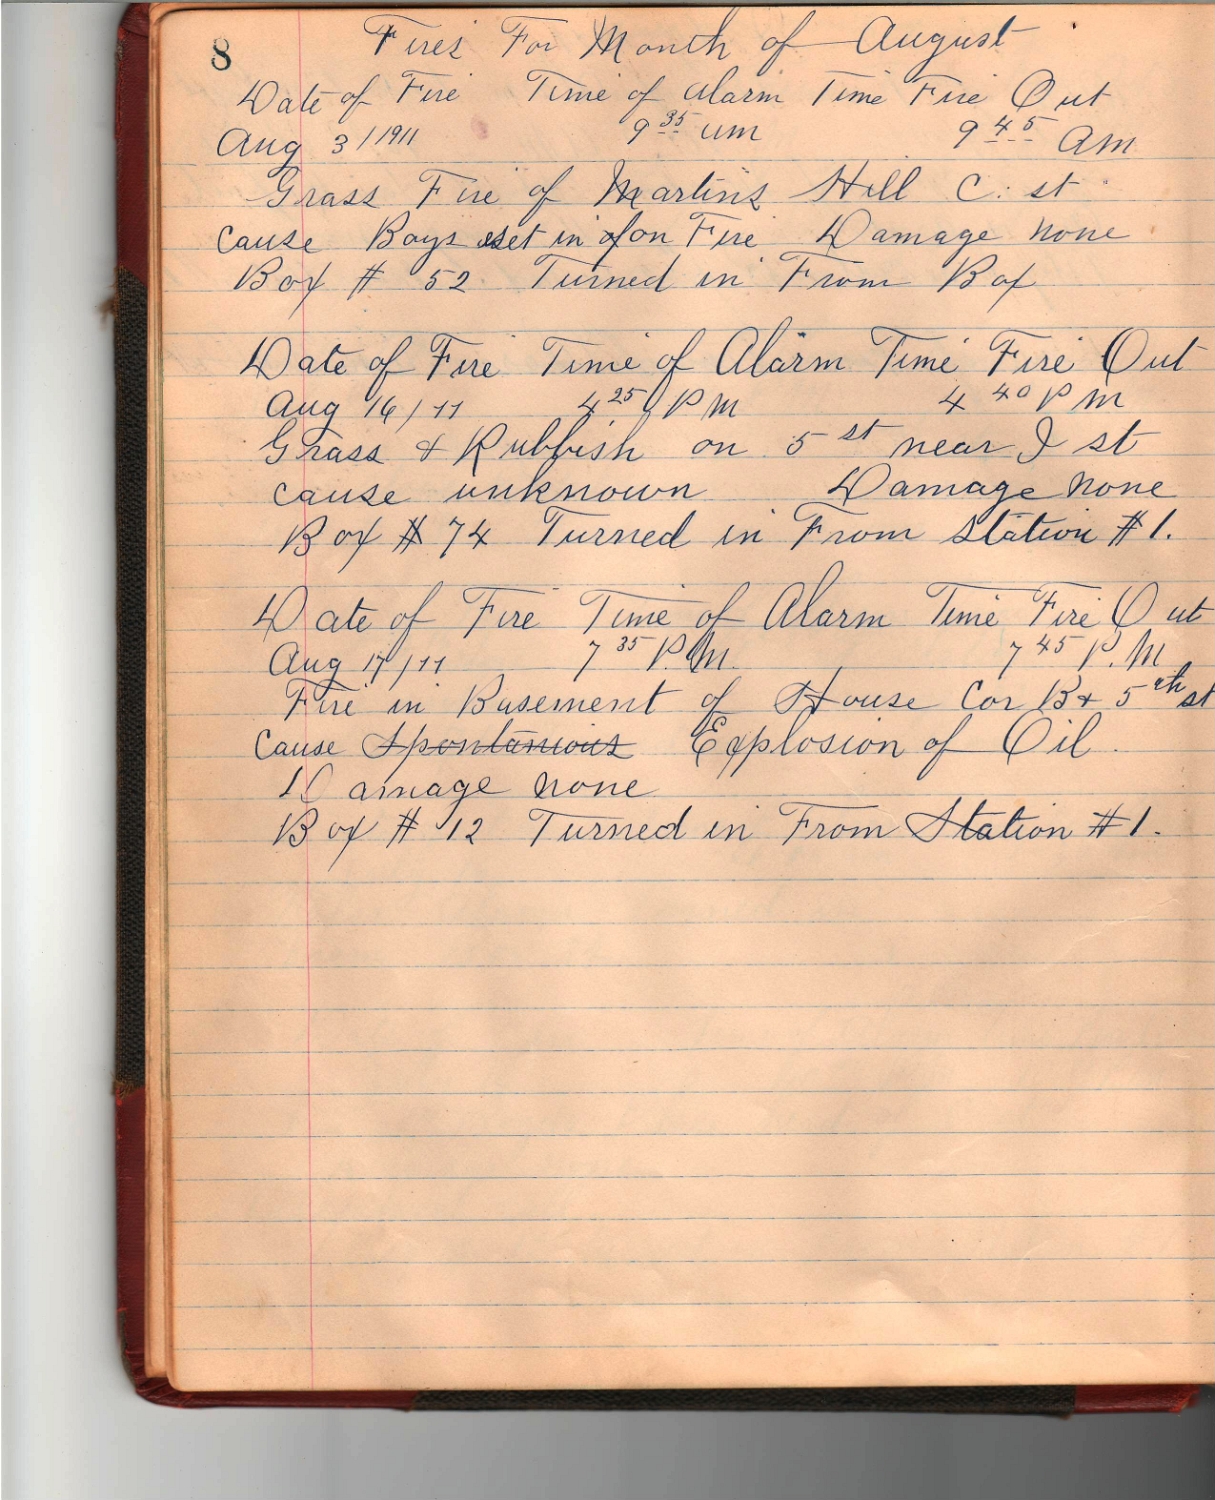 8
Fires For Month of August
Date of Fire Time of Alarm Time Fire Out
Aug 3/1911 9 35 am 9 45 Am
Grass Fire of Martins Hill C. st
cause Boys set in on Fire Damage none
Box # 52 Turned in From Box
Date of Fire Time of Alarm Time Fire Out
Aug 16/11 4 25 P M 4 40 P M
Grass & Rubbish on 5 st near J st
cause unknown Damage none
Box # 74 Turned in From Station #1.
Date of Fire Time of Alarm Time Fire Out
Aug 17/11 7 35 P.M. 7 45 P.M
Fire in Basement of House Cor B & 5 th st
Cause Spontanious Explosion of Oil.
Damage none
Box # 12 Turned in From Station #1.